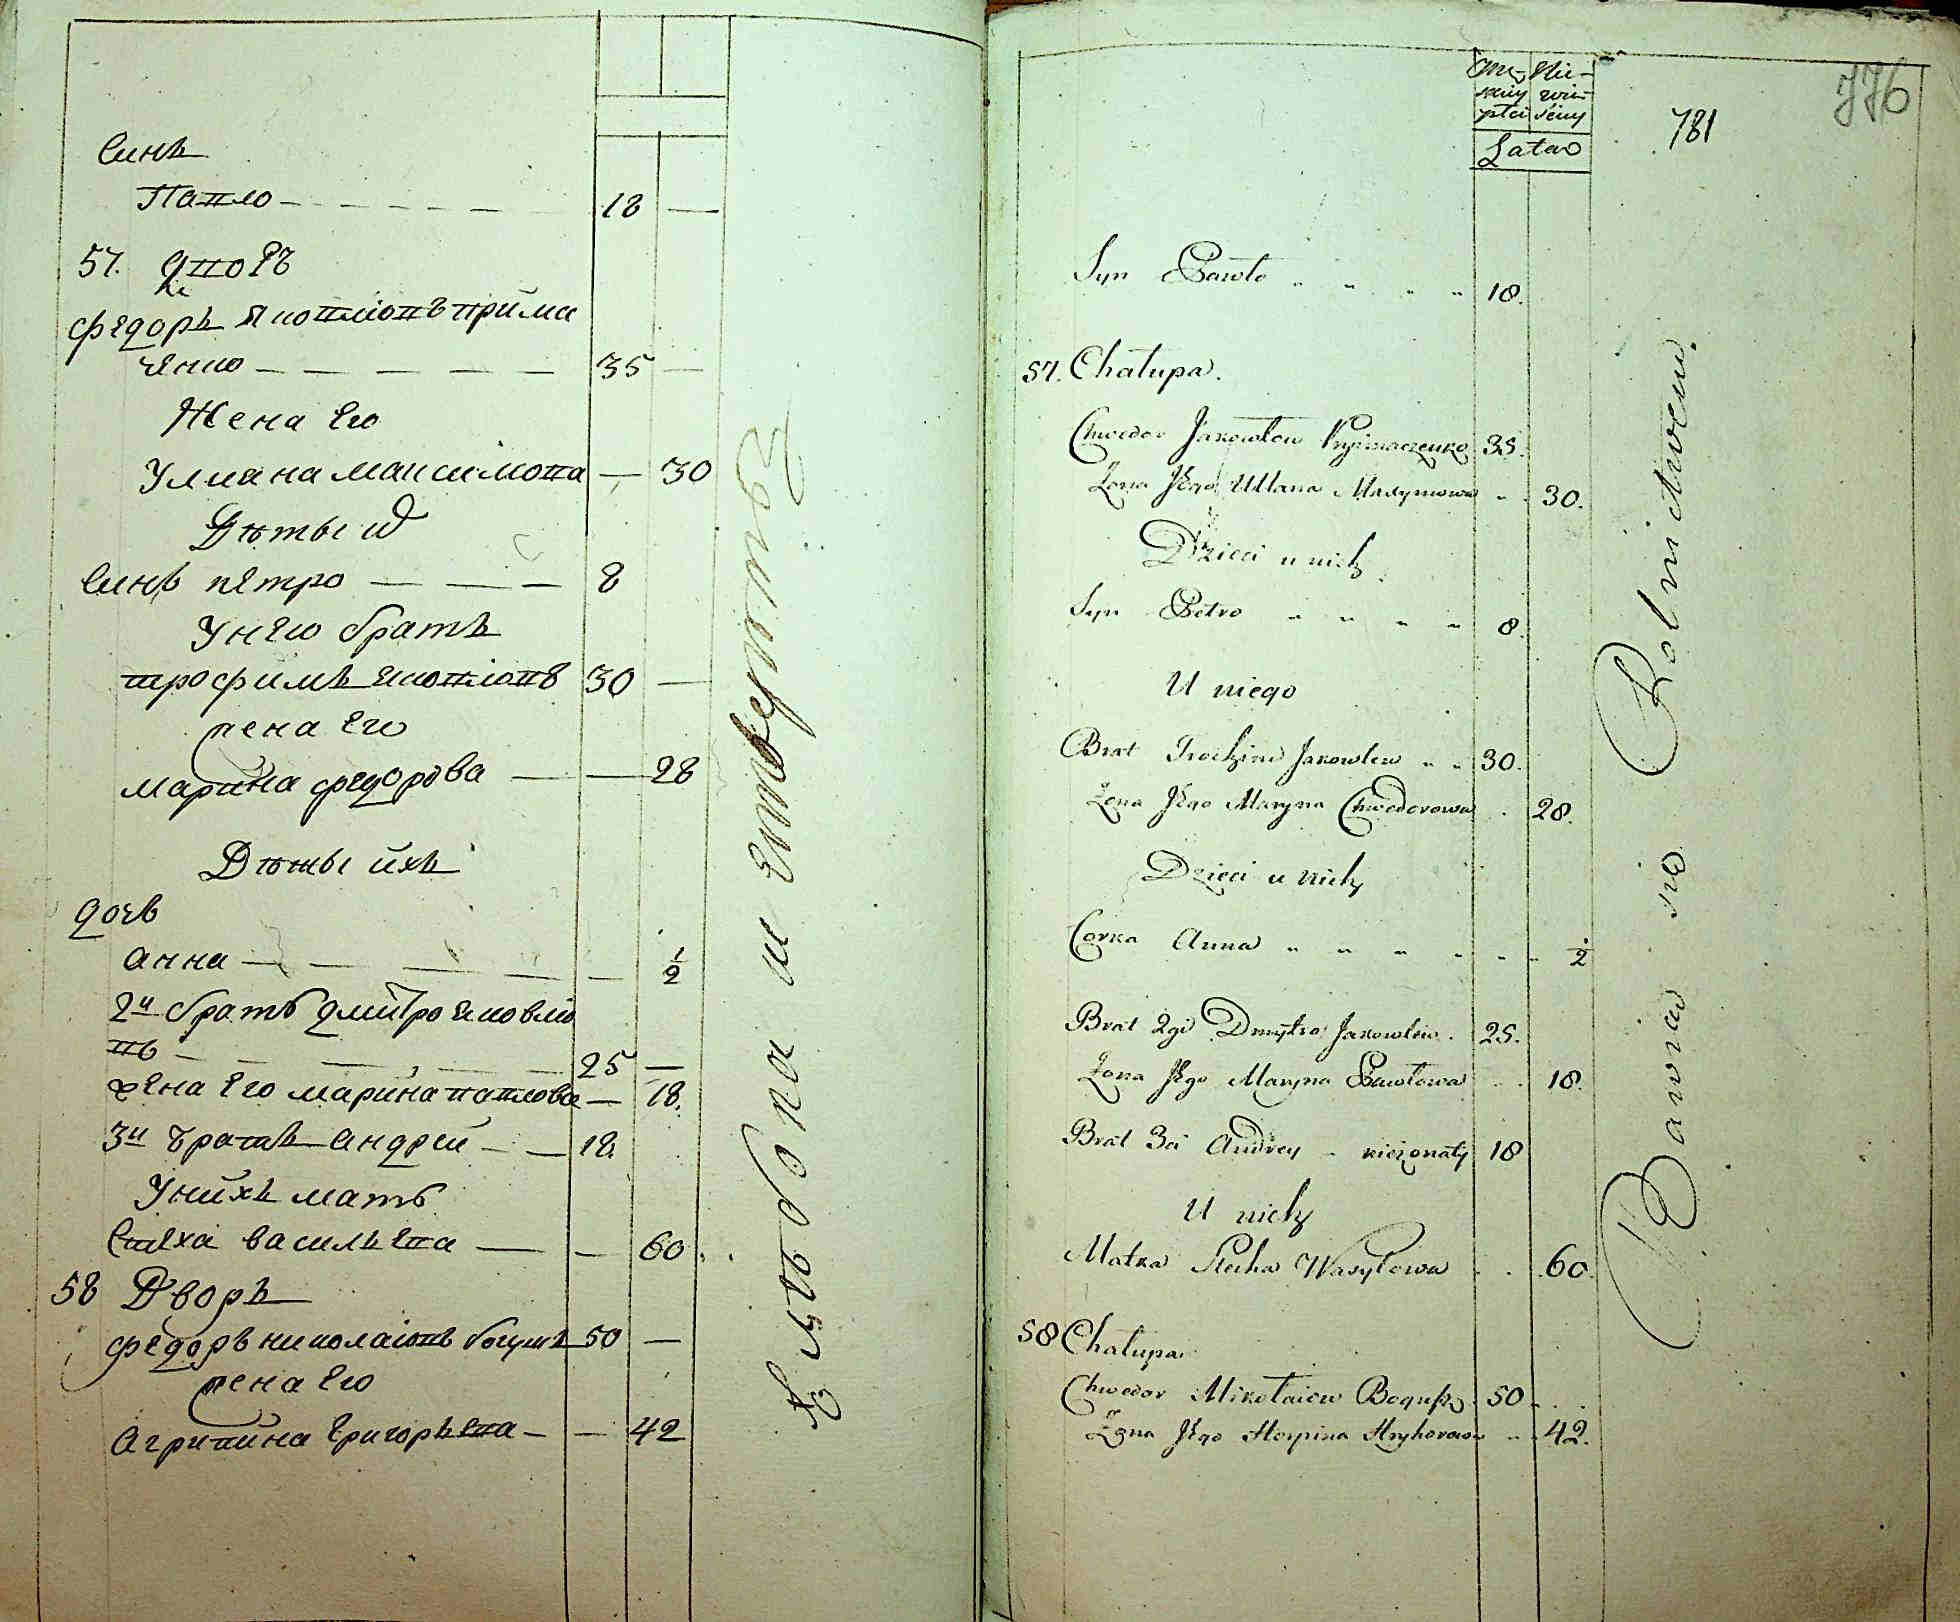 Синъ
Павло — — — — — — 18 —
57. дворъ
Федоръ Яковлювъ прима
ченко — — — — — 35 —
Жена Его
Улиана Максимова — 30
Дѣты и
Синъ пЕтро — — — 8
У нЕго братъ
трофимъ Яковлювъ 30 —
жена Его
марина федорова — — 28
Дѣты ихъ
дочь
Анна — — — — — 1/2
2й братъ дмитро Яковлю
въ — — — — — 25 —
жЕна Его марина павлова — 18.
3й братъ Андрей — — 18.
У нихъ мать
СтЕха васильЕва — — 60.
58 Дворъ
федоръ николаювъ богушъ 50 —
жена Его
Агрипина ГригорьЕва — — 42
776
781
Męz-
kiey
płci
Nie-
wie-
ściey
Lata
Syn Pawło " " " " 18.
57. Chałupa.
Chwedor Jakowlew Pryimaczenko 35.
Żona Jego Ullana Maxymowa " . 30.
Dzieci u nich
Syn Petro " " " " 8.
U niego
Brat Trochim Jakowlew " " 30.
Żona Jego Maryna Chwedorowa . 28.
Dzieci u nich
Corka Anna " " " " " " 1/2
Brat 2gi Dmytro Jakowlew . 25.
Żona Jego Maryna Pawłowa . . 18.
Brat 3ci Andrey - nieżonaty 18
U nich
Matka Stecha Wasylowa . . 60.
58 Chałupa.
Chwedor Mikołaiew Bogusz 50 . .
Żona Jego Horpina Hryhorowa " . 42.
Bawia się Rolnictwem.